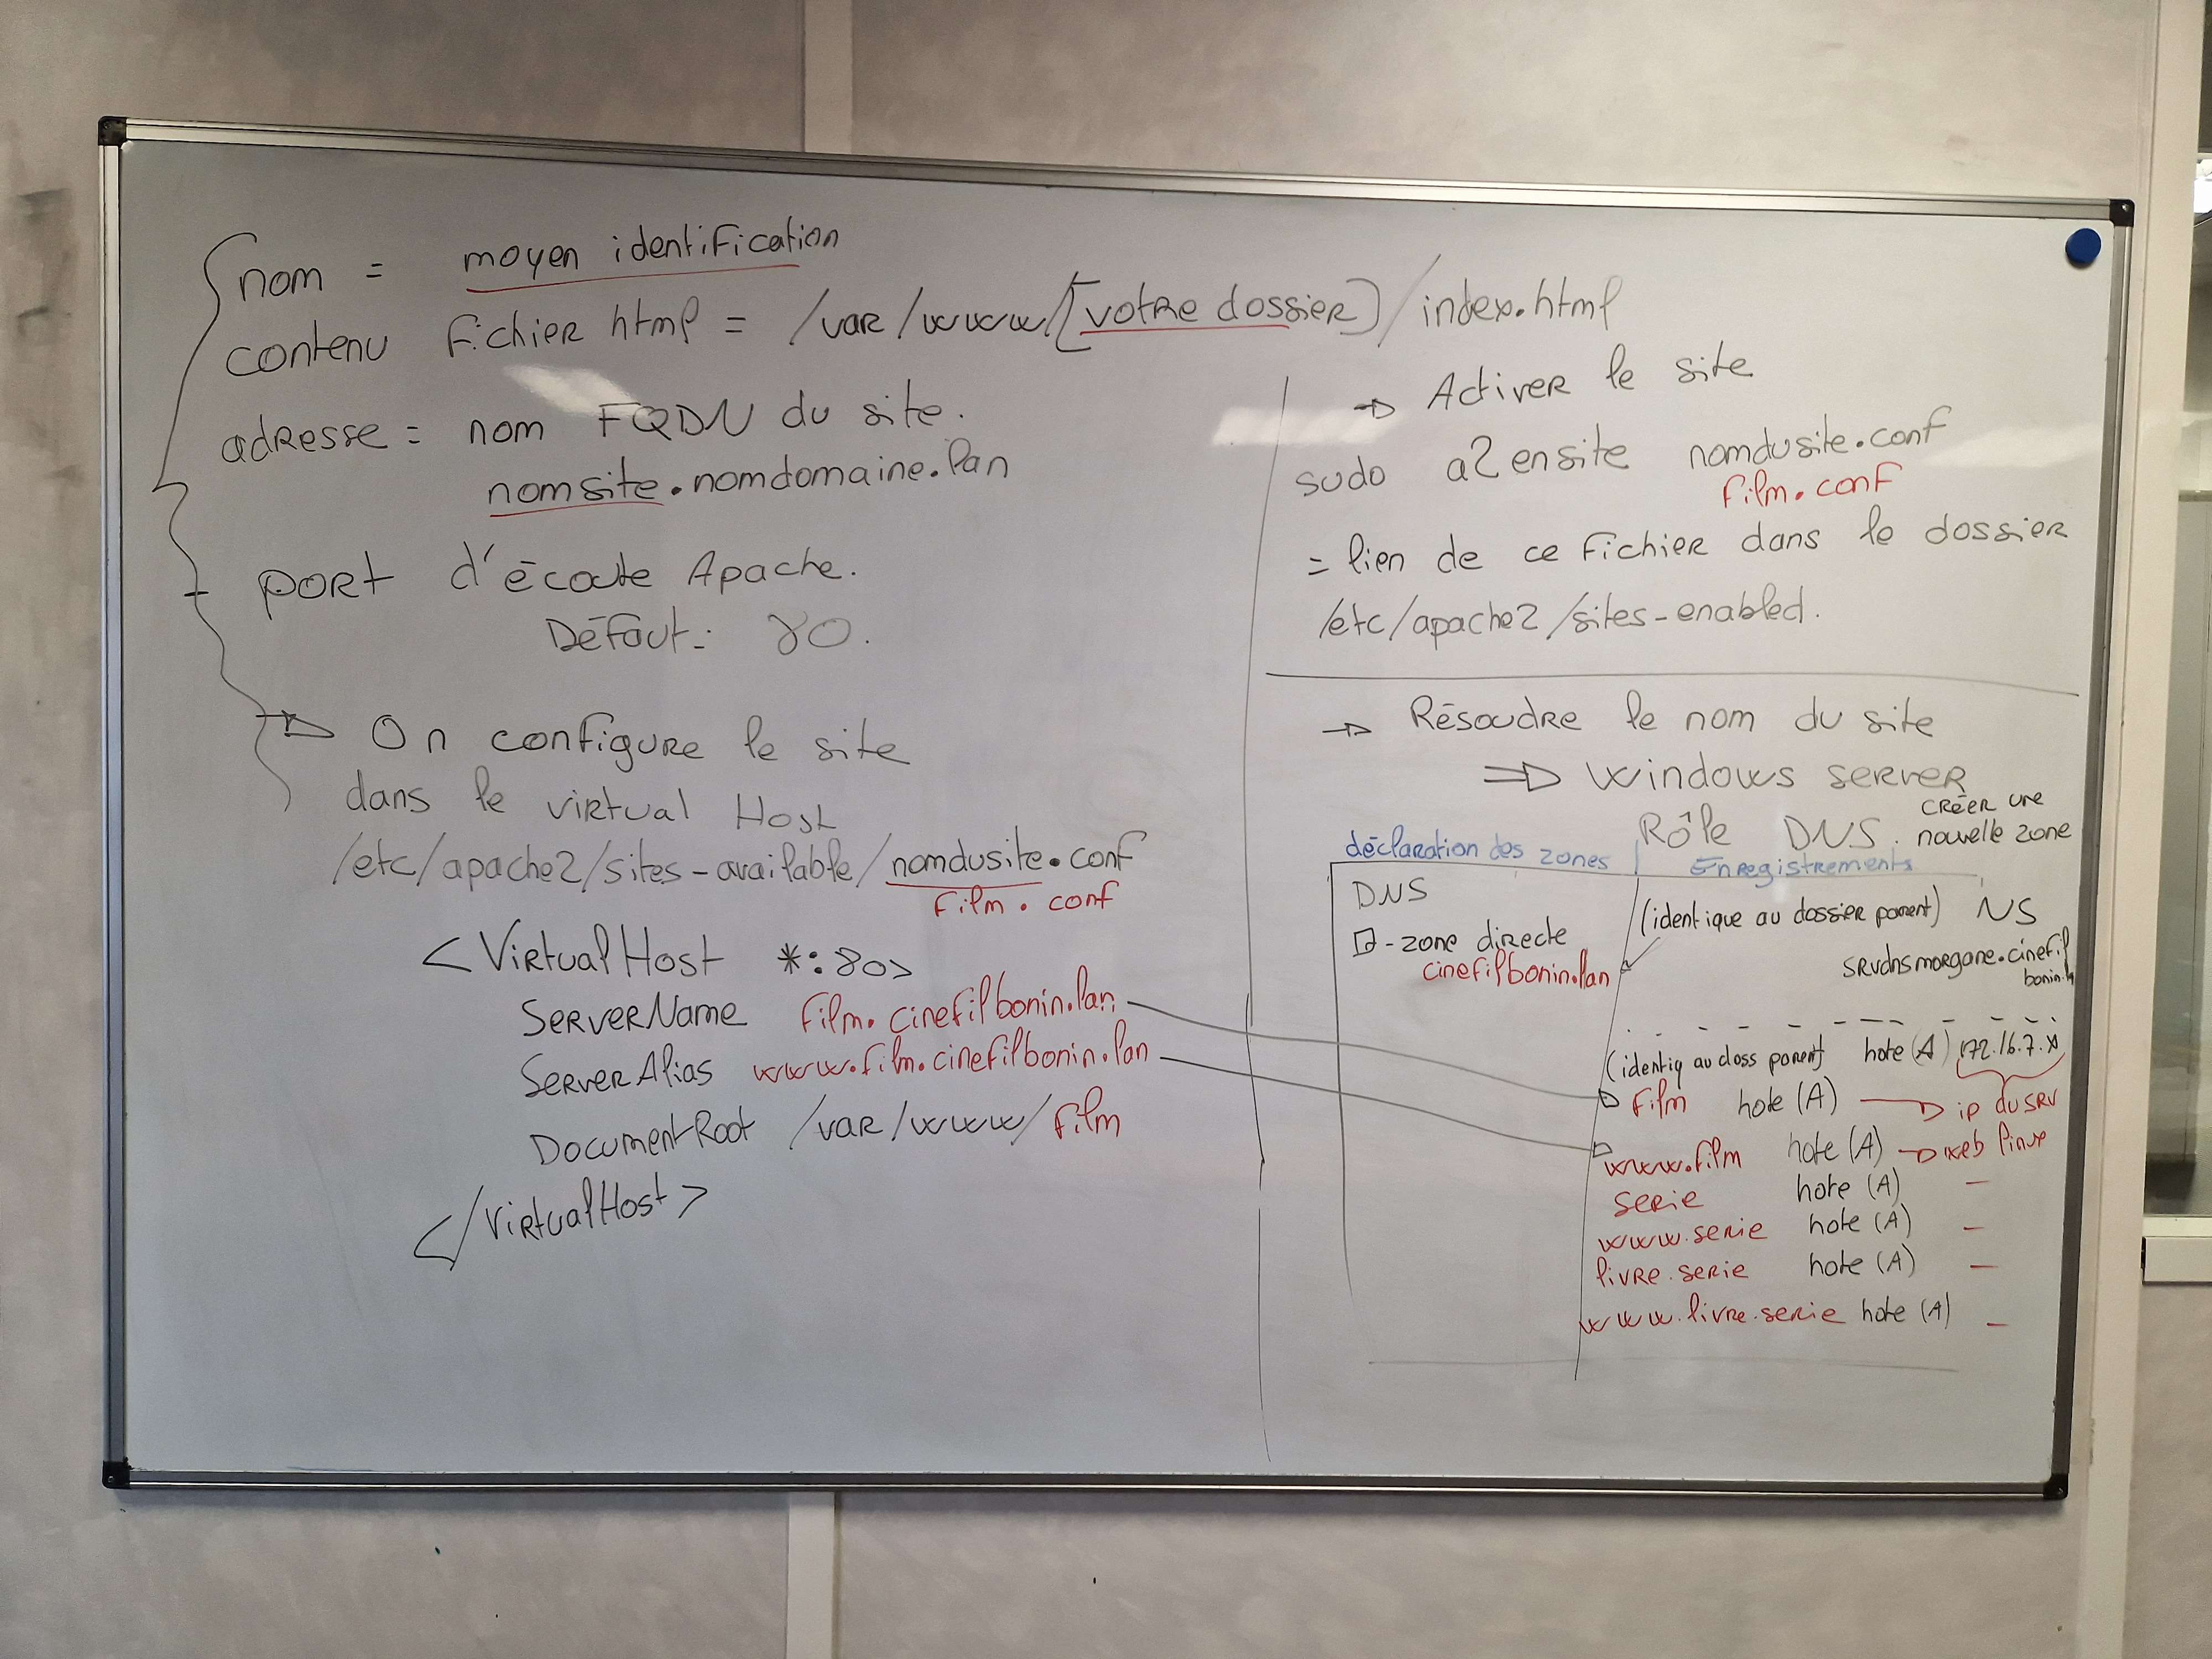 nom = moyen identification
contenu fichier html = /var/www/[votre dossier]/index.html
adresse = nom FQDN du site.
nomsite.nomdomaine.lan
port d'écoute Apache.
Défaut : 80.
→ On configure le site
dans le virtual Host
/etc/apache2/sites-available/nomdusite.conf
film.conf
<VirtualHost *:80>
ServerName film.cinefilbonin.lan
ServerAlias www.film.cinefilbonin.lan
DocumentRoot /var/www/film
</VirtualHost>
→ Activer le site
sudo a2ensite nomdusite.conf
film.conf
= lien de ce fichier dans le dossier
/etc/apache2/sites-enabled.
→ Résoudre le nom du site
⇒ Windows server
Rôle DNS. créer une
nouvelle zone
déclaration des zones Enregistrements
DNS
- zone directe
cinefilbonin.lan
(identique au dossier parent) NS
srvdnsmorgane.cinefil
bonin.la
(identiq au doss parent) hote (A) 172.16.7.x
film hote (A) → ip du SRV
www.film hote (A) → web linux
serie hote (A) –
www.serie hote (A) –
livre.serie hote (A) –
www.livre.serie hote (A) –